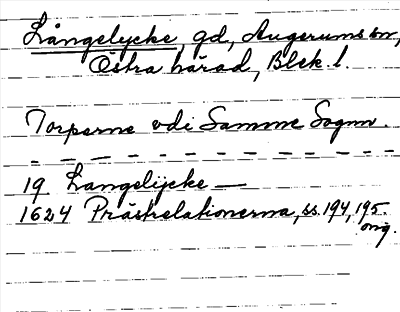 Långelycke, gd, Augerums sn,
Östra härad, Blek. l.
Torperne vdi Samme Sognn.
19 Langelijcke —
1624 Prästrelationerna, ss. 194, 195.
orig.